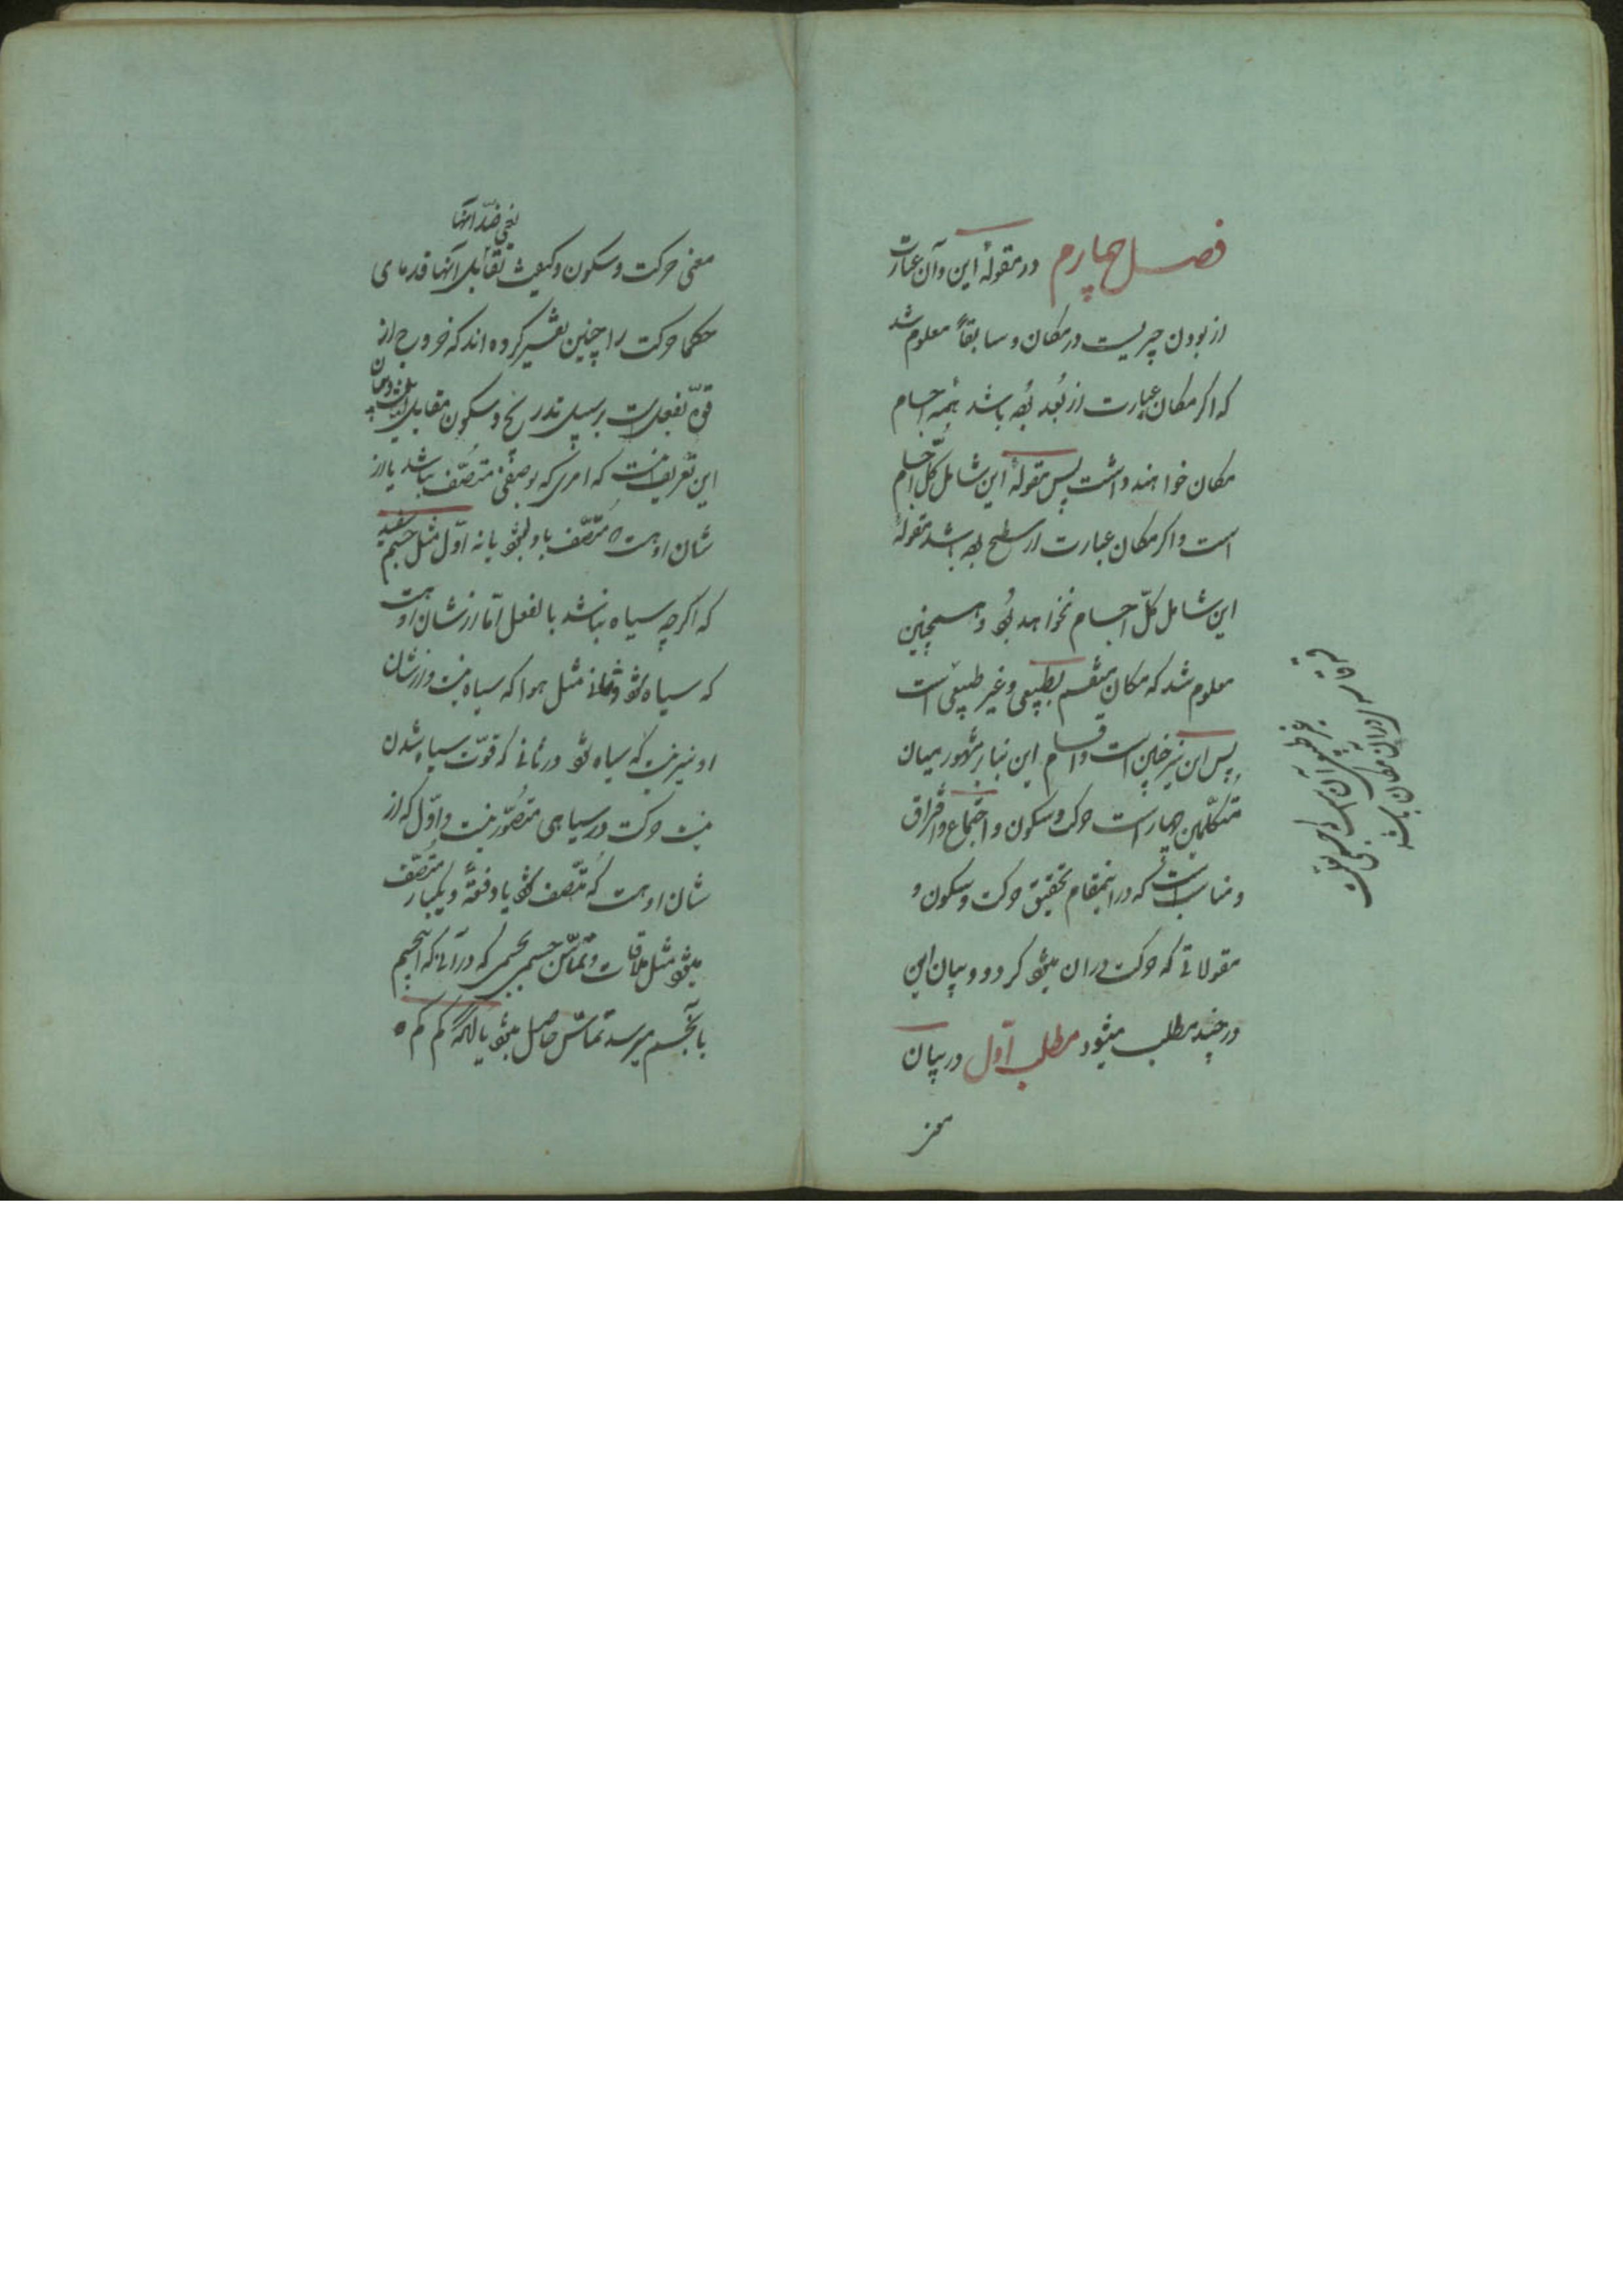 فصل چهارم در مقولهٔ این و آن عبارت
از بودن چیزیست در مکان و سابقاً معلوم شد
که اگر مکان عبارت از بُعد بوده باشد همه اجسام
مکان خواهند داشت پس مقولهٔ این شامل کلّ اجسام
است و اگر مکان عبارت از سطح بوده باشد مقولهٔ
این شامل کلّ اجسام نخواهد بود و همچنین
معلوم شد که مکان منقسم بطبیعی و غیر طبیعی است
پس این نیز چنین است و اقسام این بنا بر مشهور میان
متکلّمین چهار است حرکت و سکون و اجتماع و افتراق
و مناسب است که در اینمقام تحقیق حرکت و سکون و
مقولاتی که حرکت در آن میشود کرده و بیان این
در چند مطلب میشود مطلب اوّل در بیان
معنی
معنی حرکت و سکون و کیفیت تقابل آنها قدمای
یعنی ضدّ آنها
حکما حرکت را چنین تفسیر کرده اند که خروج از
قوّه بفعل است بر سبیل تدریج و سکون مقابل
این تعریف است که امری که بوصفی متّصف نباشد یا از
شان او هست که متّصف باو بشود یا نه اوّل مثل جسم سفید
که اگر چه سیاه نباشد بالفعل امّا از شان او هست
که سیاه شود و ثانی مثل هوا که سیاه نیست و از شان
او نیز نیست که سیاه شود در ثانی که قوّت سیاه شدن
نیست حرکت در سیاهی متصوّر نیست و اوّل که از
شان او هست که متّصف شود یا دفعةً و یکبار متّصف
میشود مثل ملاقات و تماسّ جسمی بجسمی که در آنی که اینجسم
بآنجسم میرسد تماسّ حاصل میشود یا آنکه کم کم